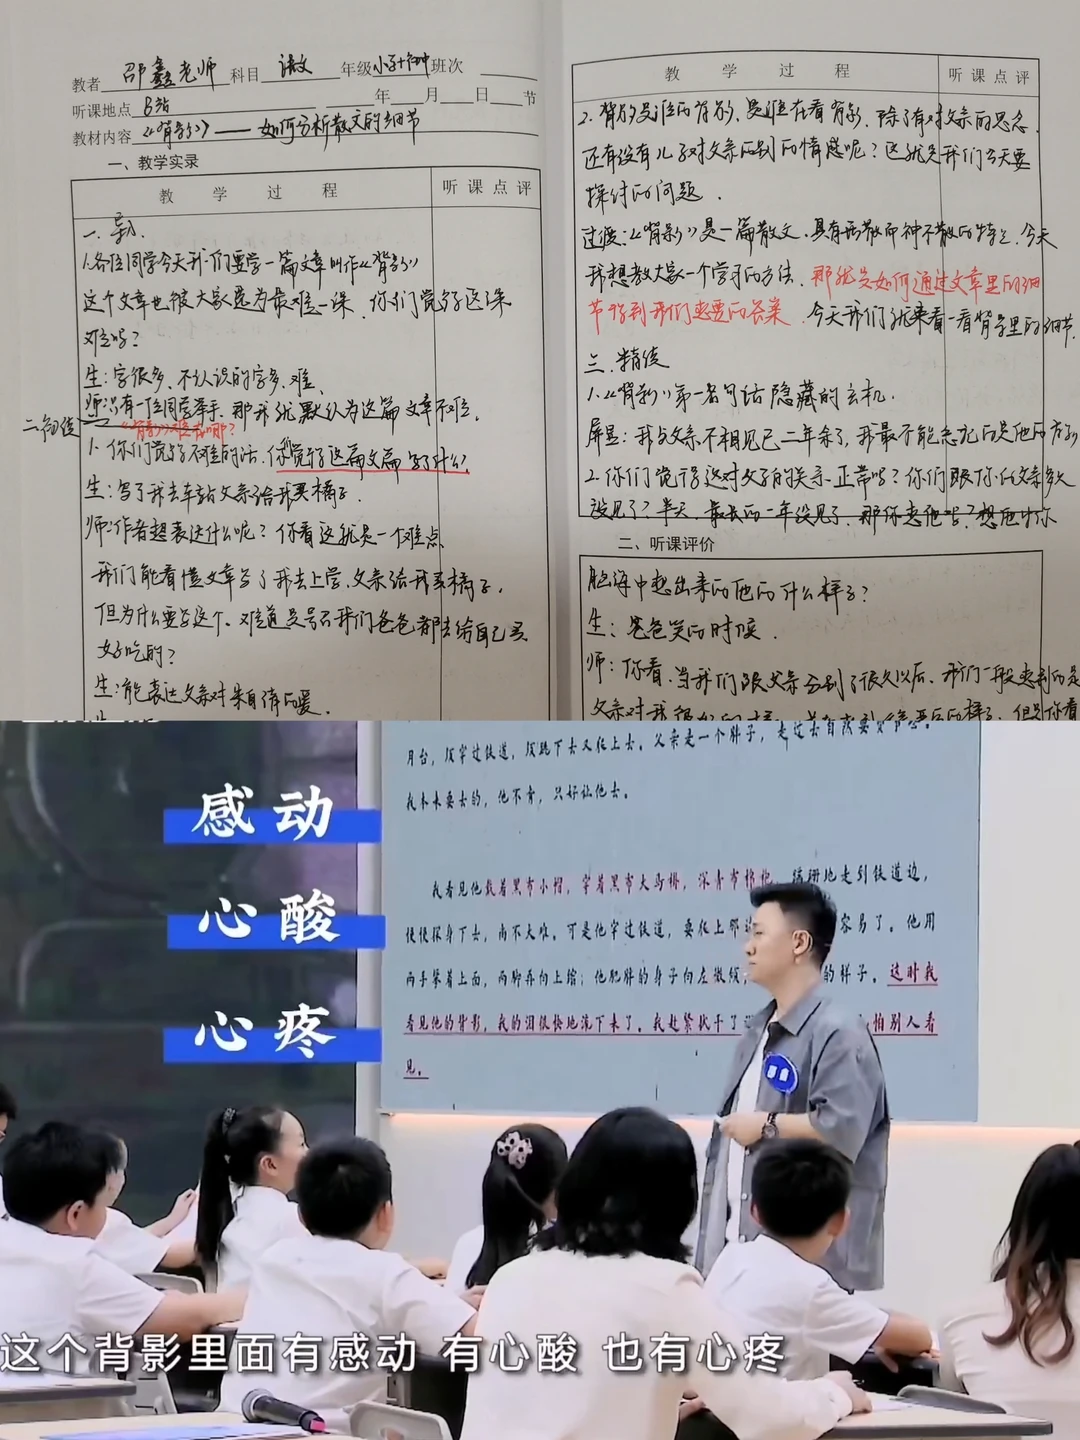 教者 邵鑫老师 科目 语文 年级 小学+初中 班次
听课地点 B站 年 月 日 节
教材内容 《背影》——如何分析散文的细节
一、教学实录
教 学 过 程 听课点评
一.导入.
1.各位同学今天我们要学一篇文章叫作《背影》
这个文章也被大家选为最难一课.你们觉得这课
难吗?
生:字很多、不认识的字多、难.
师:只有一位同学举手.那我就默认为这篇文章不难.
二.初读 《背影》难在哪?
1.你们觉得不难的话.你觉得这篇文章写了什么?
生:写了我去车站父亲给我买橘子.
师:作者想表达什么呢?你看这就是一个难点
我们能看懂文章写了我去上学,父亲给我买橘子.
但为什么要写这个.难道是号召我们爸爸都去给自己买
好吃的?
生:能表达父亲对朱自清的爱.
教 学 过 程 听课点评
2.背影是谁的背影,是谁在看背影,除了有对父亲的思念.
还有没有儿子对父亲的别的情感呢?这就是我们今天要
探讨的问题.
过渡:《背影》是一篇散文.具有形散而神不散的特点.今天
我想教大家一个学习的方法.那就是如何通过文章里的细
节得到我们想要的答案.今天我们就来看一看背影里的细节.
三.精读
1.《背影》第一句话隐藏的玄机.
屏显:我与父亲不相见已二年余了,我最不能忘记的是他的背影
2.你们觉得这对父子的关系正常吗?你们跟你们父亲多久
没见了?半天,最长的一年没见了.那你想他吗?想他时你
二、听课评价
脑海中想出来的他的什么样子?
生:爸爸笑的时候.
师:你看,当我们跟父亲分别了很久以后.我们一般想到的是
月台,须穿过铁道,须跳下去又爬上去。父亲是一个胖子,走过去自然要费事些。
我本来要去的,他不肯,只好让他去。
我看见他戴着黑布小帽,穿着黑布大马褂,深青布棉袍,蹒跚地走到铁道边,
慢慢探身下去,尚不大难。可是他穿过铁道,要爬上那 容易了。他用
两手攀着上面,两脚再向上缩;他肥胖的身子向左微倾, 的样子。这时我
看见他的背影,我的泪很快地流下来了。我赶紧拭干了 怕别人看
见。
感动
心酸
心疼
这个背影里面有感动 有心酸 也有心疼